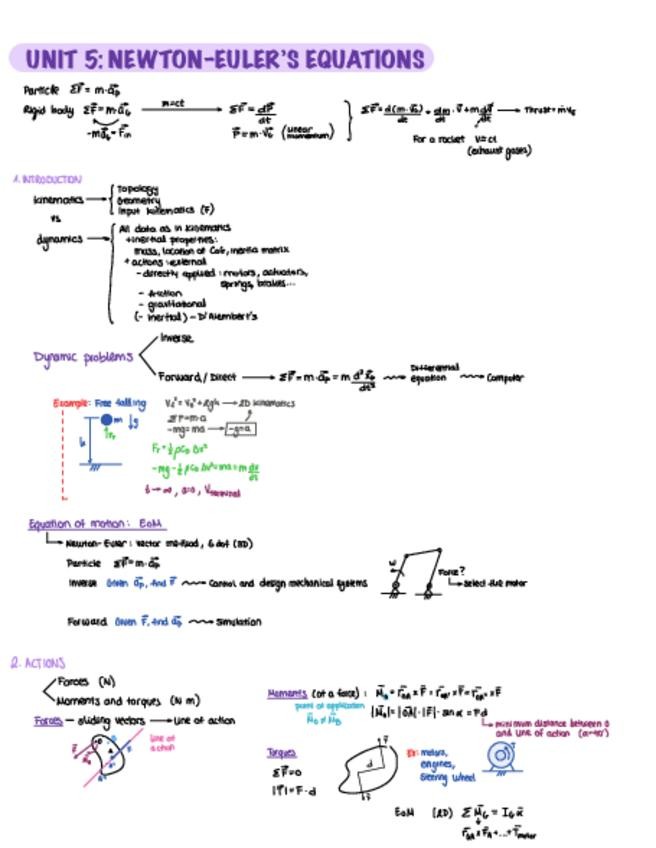 UNIT 5: NEWTON-EULER'S EQUATIONS
Particle ΣF⃗ = m·a⃗p
Rigid body ΣF⃗ = m·a⃗G m=ct ΣF⃗ = dP⃗/dt ΣF⃗ = d(m·v⃗G)/dt = dm/dt · v⃗ + m dv⃗/dt → Thrust = ṁve
-ma⃗G = F⃗in P⃗ = m·v⃗G (linear momentum) For a rocket v=ct
(exhaust gases)
1. INTRODUCTION
kinematics → Topology
Geometry
Input kinematics (F)
vs
dynamics → All data as in kinematics
+inertial properties:
mass, location of CoG, inertia matrix
+ actions: external
- directly applied: motors, actuators,
springs, brakes...
- friction
- gravitational
(- inertial) - D'Alembert's
Dynamic problems
Inverse
Forward / Direct → ΣF⃗ = m·a⃗p = m d²x⃗G/dt² Differential equation Computer
Example: Free falling Vf² = V0² + 2gh → 2D kinematics
m ↓g ΣF=m·a
h Fr -mg=ma → -g=a
Fr = ½ρCD Av²
-mg-½ρCD Av²=ma=m dv/dt
t→∞, a=0, Vterminal
Equation of motion: EoM
Newton-Euler: vector method, 6 dof (3D)
Particle ΣF⃗=m·a⃗p
Inverse Given a⃗p, find F⃗ Control and design mechanical systems
Force?
Select the motor
Forward Given F⃗, find a⃗p Simulation
2. ACTIONS
Forces (N)
Moments and torques (N m)
Forces - sliding vectors → Line of action
line of action
Moments (of a force): M⃗o = r⃗OA × F⃗ = r⃗OA' × F⃗ = r⃗OA'' × F⃗
point of application
M⃗o ≠ M⃗B
|M⃗o| = |OA|·|F|·sin α = F·d
minimum distance between O
and line of action (α=90°)
Torques
ΣF=0
|T|=F·d
d
Ex: motors,
engines,
steering wheel
EoM (2D) ΣM⃗G = IG α⃗
r⃗GA × F⃗A + ... + T⃗motor